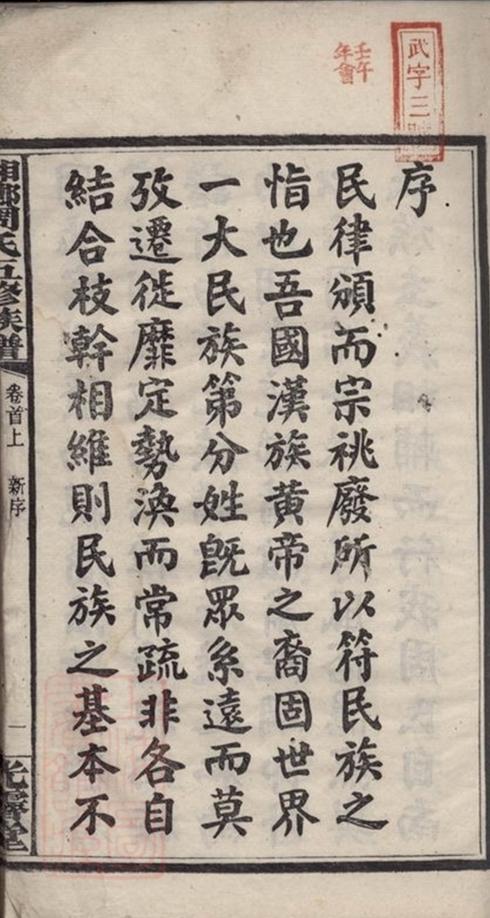 武字三
壬午
年會
序
民律頒而宗祧廢所以符民族之
恉也吾國漢族黃帝之裔固世界
一大民族第分姓旣眾系遠而莫
攷遷徙靡定勢渙而常疏非各自
結合枝幹相維則民族之基本不
湘鄉周氏五修族譜
卷首上 新序
一
光霽堂